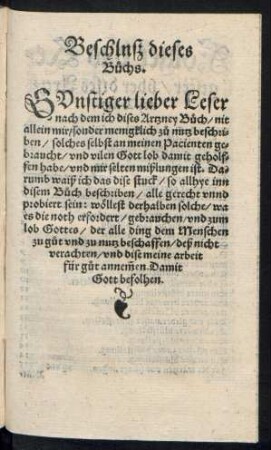 Beschluß dieses
Bůchs.
GVnstiger lieber Leser
nach dem ich dises Artzney Bůch / nit
allein mir / sonder menigklich zů nutz beschri-
ben / solches selbst an meinen Pacienten ge-
braucht / vnd vilen Gott lob damit geholf-
fen habe / vnd mir selten mißlungen ist. Da-
rumb waiß ich das dise stuck / so allhye inn
disem Bůch beschriben / alle gerecht vnnd
probiert sein: wöllest derhalben solche / wa
es die noth erfordert / gebrauchen / vnd zum
lob Gottes / der alle ding dem Menschen
zů gůt vnd zů nutz beschaffen / deß nicht
verachten / vnd dise meine arbeit
für gůt annem̃en. Damit
Gott befolhen.